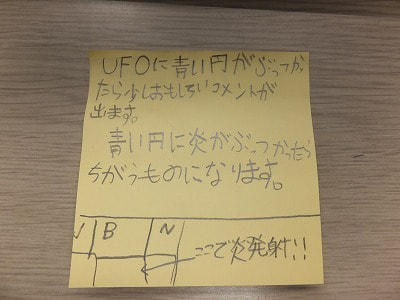 UFOに青い円がぶつかっ
たら少しおもしろいコメントが
出ます。
青い円に炎がぶつかったら
ちがうものになります。
V B N
ここで炎発射!!